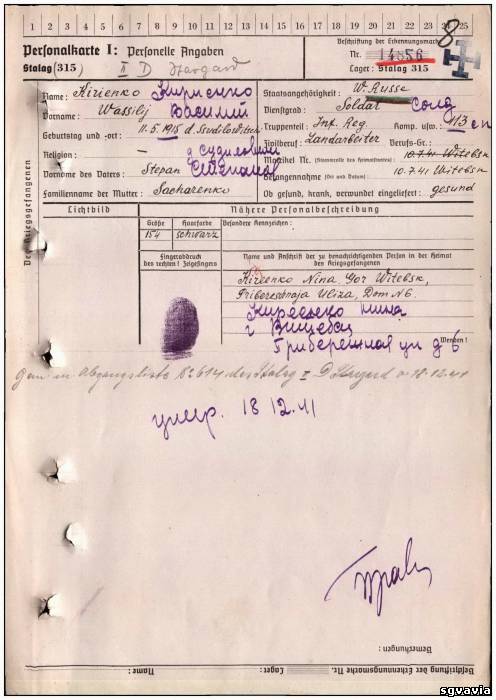 1 2 3 4 5 6 7 8 9 10 11 12 13 14 15 16 17 18 19 20 21 22 23 24 25
8
Personalkarte I: Personelle Angaben
Beschriftung der Erkennungsmarke
Stalag (315) II D Stargard
Nr. 14856
Lager: Stalag 315
Des Kriegsgefangenen
Name: Kirienko Кириенко
Staatsangehörigkeit: W. Russe
Vorname: Wassilij Василий
Dienstgrad: Soldat Солд
Geburtstag und -ort: 11.5.1915 d.
Truppenteil: Inf. Reg. Komp. usw.: 113 сп
Religion: —
Zivilberuf: Landarbeiter Berufs-Gr.:
Matrikel Nr. (Stammrolle des Heimatstaates): 10.7.41 Witebsk
Vorname des Vaters: Stepan Степан
Gefangennahme (Ort und Datum): 10.7.41 Witebsk
Familienname der Mutter: Sacharenko
Ob gesund, krank, verwundet eingeliefert: gesund
Lichtbild
Nähere Personalbeschreibung
Größe Haarfarbe Besondere Kennzeichen:
154 schwarz
Fingerabdruck
des rechten! Zeigefingers
Name und Anschrift der zu benachrichtigenden Person in der Heimat
des Kriegsgefangenen
Kireenko Nina Gor Witebsk,
Priberschnaja Uliza, Dom N6.
нина
г Вицебск
Прибережная ул д 6
Wenden!
Gem. Abgangsliste des Stalag II D Stargard v. 18.12.41
умер. 18 12.41
Bemerkungen:
Name:
Lager:
Beschriftung der Erkennungsmarke Nr.
sgvavia